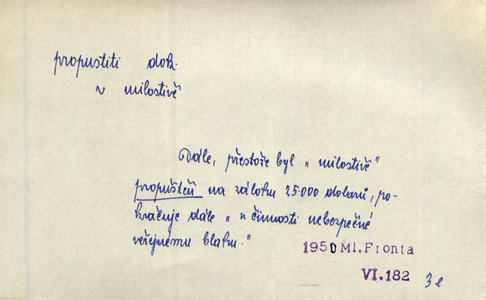 propustiti dok.
v milostivě
Dále, přestože byl „milostivě"
propuštěn na zálohu 25.000 dolarů, po-
kračuje dále „v činnosti nebezpečné
veřejnému blahu."
1950 Ml. Fronta
VI. 182
3e